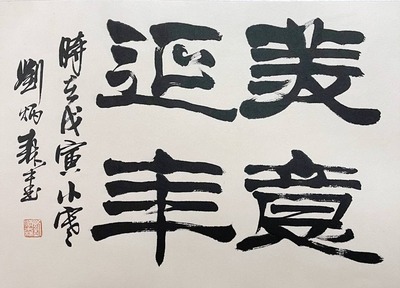 美意
延年
時在戊寅小寒
劉炳森書